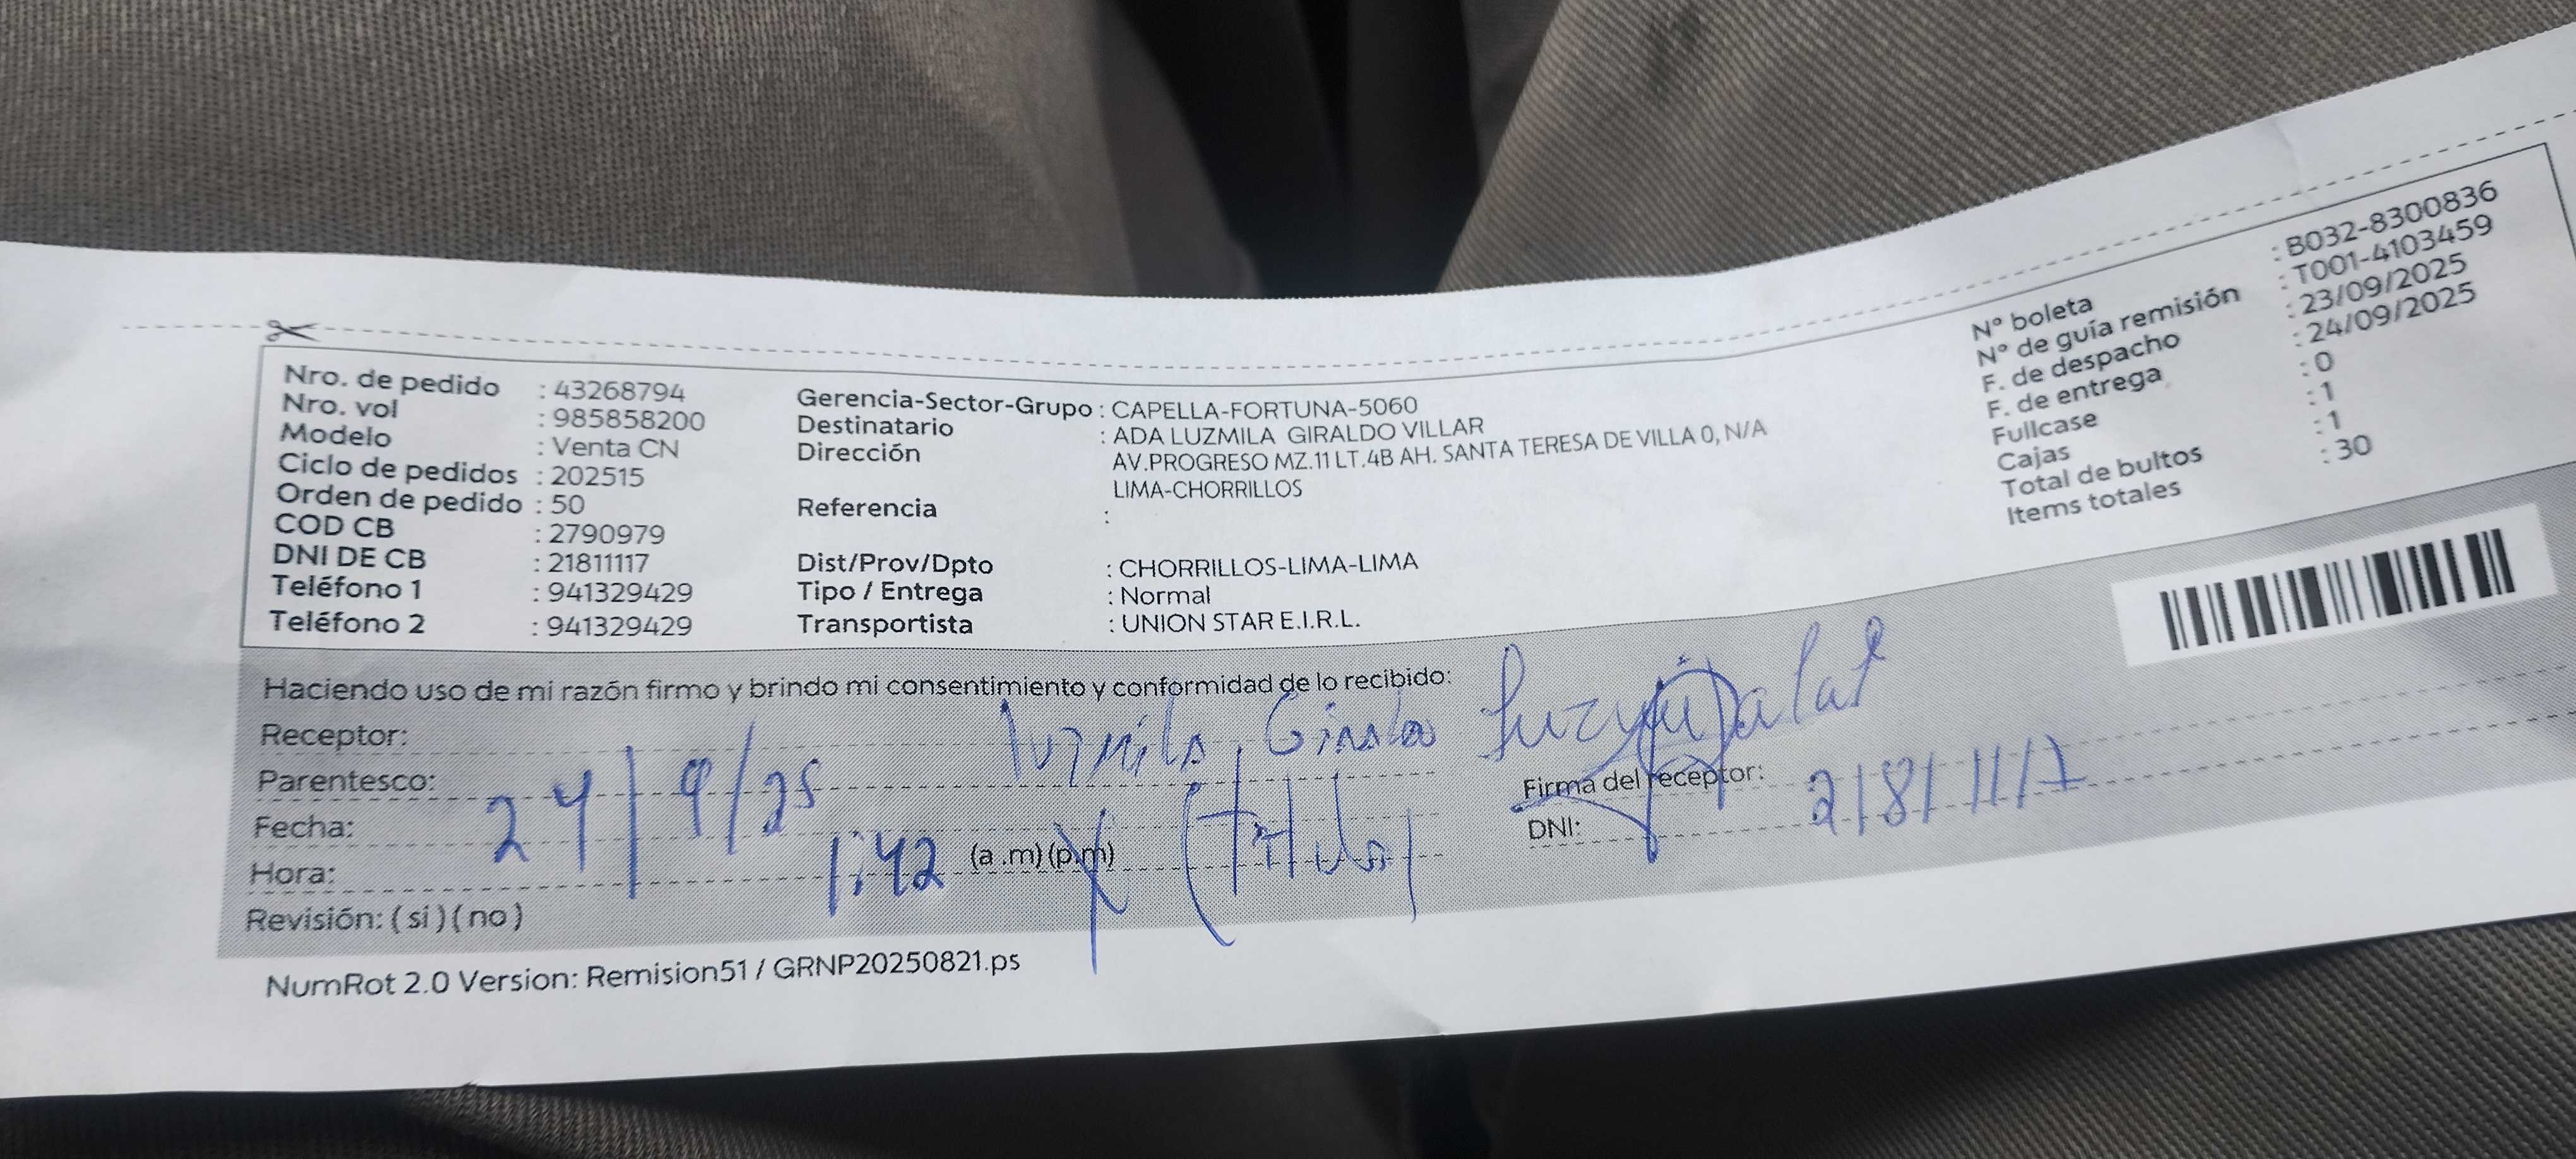 Nro. de pedido : 43268794
Nro. vol : 985858200
Modelo : Venta CN
Ciclo de pedidos : 202515
Orden de pedido : 50
COD CB : 2790979
DNI DE CB : 21811117
Teléfono 1 : 941329429
Teléfono 2 : 941329429
Gerencia-Sector-Grupo : CAPELLA-FORTUNA-5060
Destinatario : ADA LUZMILA GIRALDO VILLAR
Dirección AV.PROGRESO MZ.11 LT.4B AH. SANTA TERESA DE VILLA 0, N/A
LIMA-CHORRILLOS
Referencia :
Dist/Prov/Dpto : CHORRILLOS-LIMA-LIMA
Tipo / Entrega : Normal
Transportista : UNION STAR E.I.R.L.
N° boleta : B032-8300836
N° de guía remisión : T001-4103459
F. de despacho : 23/09/2025
F. de entrega : 24/09/2025
Fullcase : 0
Cajas : 1
Total de bultos : 1
Items totales : 30
Haciendo uso de mi razón firmo y brindo mi consentimiento y conformidad de lo recibido:
Receptor: Luzmila
Parentesco: (Titular)
Fecha: 24/9/25
Hora: 1:42 (a .m) (p.m)
Revisión: ( si ) ( no )
Firma del receptor:
DNI: 21811117
NumRot 2.0 Version: Remision51 / GRNP20250821.ps